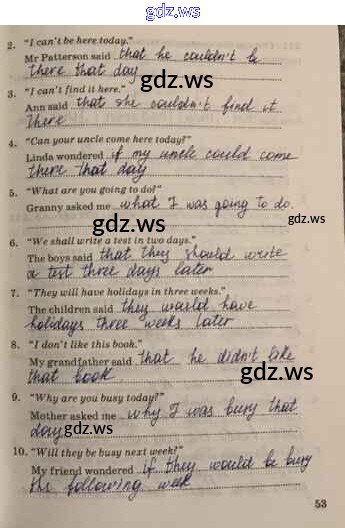 gdz.ws
2. "I can't be here today."
Mr Patterson said that he couldn't be
there that day
gdz.ws
3. "I can't find it here."
Ann said that she couldn't find it
there
4. "Can your uncle come here today?"
Linda wondered if my uncle could come
there that day
gdz.ws
5. "What are you going to do?"
Granny asked me what I was going to do.
gdz.ws
gdz.ws
6. "We shall write a test in two days."
The boys said that they should write
a test three days later
7. "They will have holidays in three weeks."
The children said they would have
holidays three weeks later
gdz.ws
8. "I don't like this book."
My grandfather said that he didn't like
that book.
gdz.ws
9. "Why are you busy today?"
Mother asked me why I was busy that
day
gdz.ws
10. "Will they be busy next week?"
My friend wondered if they would be busy
the following week
53
gdz.ws